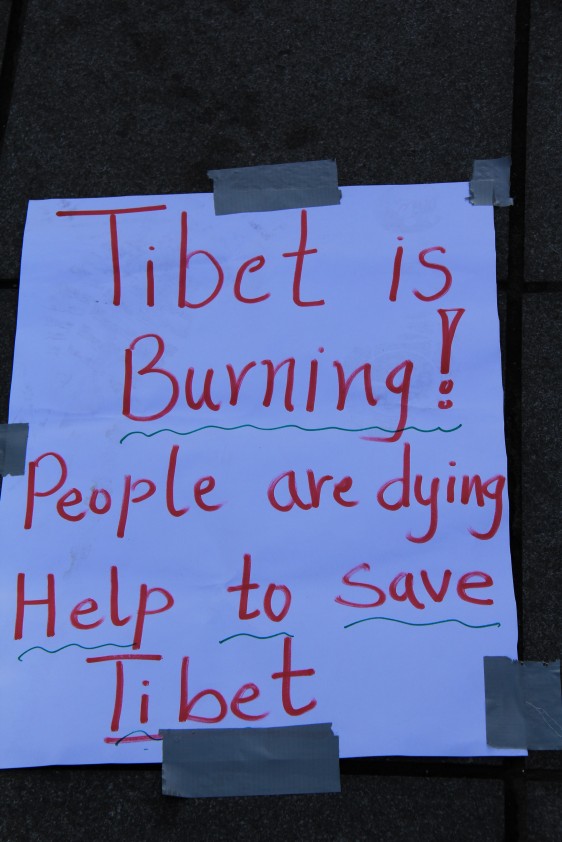 Tibet is
Burning!
People are dying
Help to save
Tibet